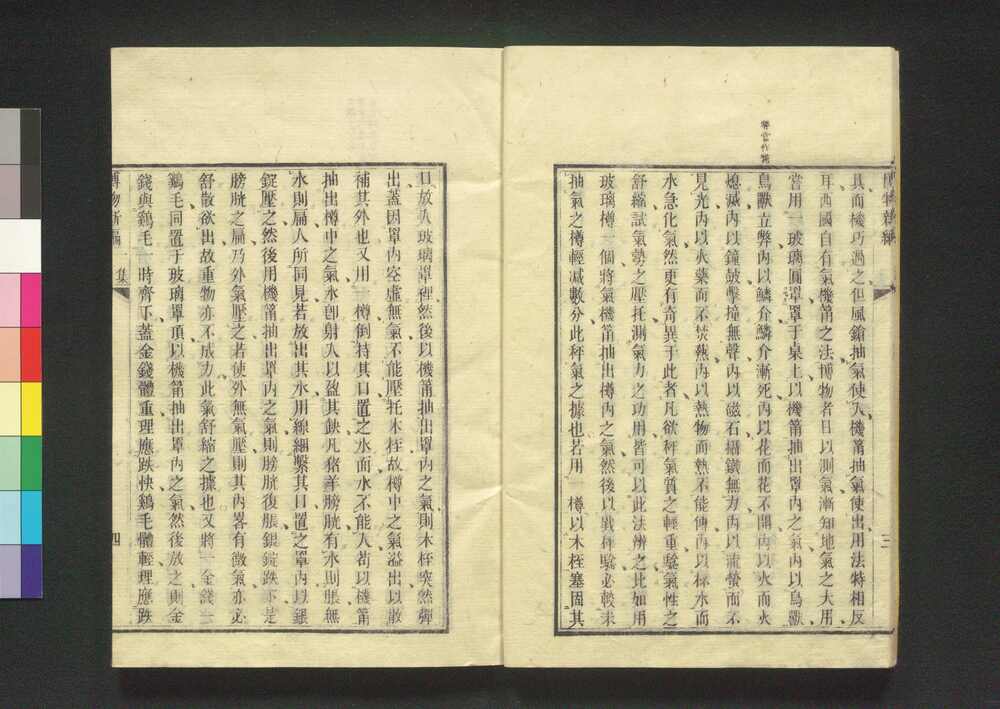 博物新編
三
弊當作斃
具而機巧過之但風鎗抽氣使入機筩抽氣使出用法特相反
耳西國自有氣機筩之法博物者日以測氣漸知地氣之大用
嘗用一玻璃圓罩罩于桌上以機筩抽出罩內之氣內以鳥獸
鳥獸立弊內以鱗介鱗介漸死內以花而花不開內以火而火
熄滅內以鐘鼓擊撞無聲內以磁石攝鐵無力內以流螢而不
見光內以火藥而不焚爇內以熱物而熱不能傳內以杯水而
水急化氣然更有奇異于此者凡欲秤氣質之輕重驗氣性之
舒縮試氣勢之壓托測氣力之功用皆可以此法辨之比如用
玻璃樽一個將氣機筩抽出樽內之氣然後以戥秤驗必較未
抽氣之樽輕減數分此秤氣之據也若用一樽以木桎塞固其
口放入玻璃罩裡然後以機筩抽出罩內之氣則木桎突然彈
出蓋因罩內空虛無氣不能壓托木桎故樽中之氣溢出以散
補其外也又用一樽倒持其口置之水面水不能入苟以機筩
抽出樽中之氣水卽射入以盈其缺凡猪羊膀胱有水則脹無
水則扁人所同見若放出其水用線綑繫其口置之罩內以銀
錠壓之然後用機筩抽出罩內之氣則膀胱復脹銀錠跌下是
膀胱之扁乃外氣壓之若使外無氣壓則其內畧有微氣亦必
舒散欲出故重物亦不成力此氣舒縮之據也又將一金錢一
鷄毛同置于玻璃罩頂以機筩抽出罩內之氣然後放之則金
錢與鷄毛一時齊下蓋金錢體重理應跌快鷄毛體輕理應跌
博物新編 一集
四